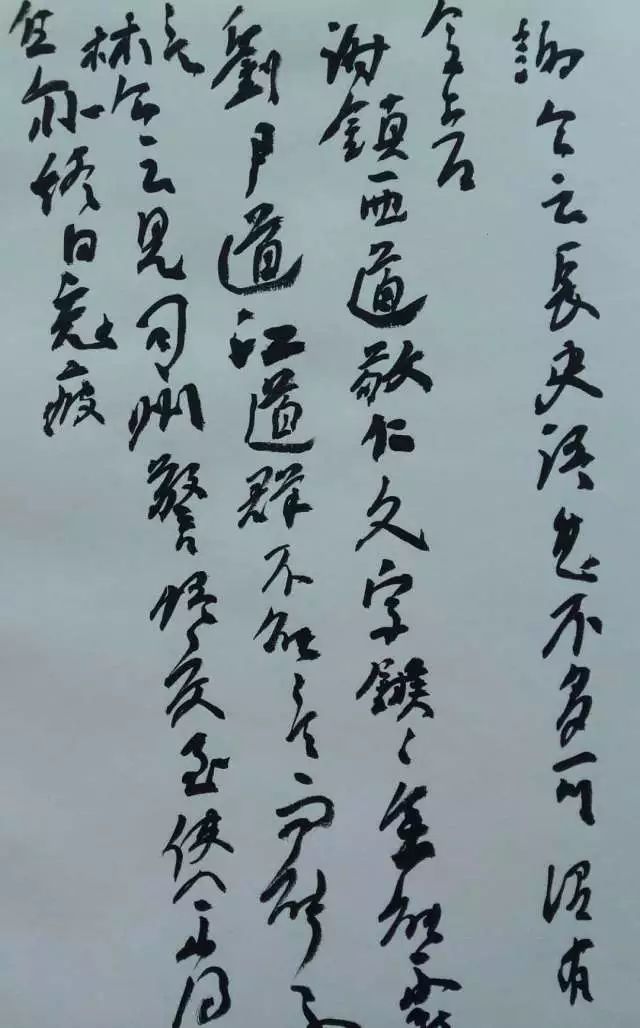 謝公云長史語甚不多可謂有
令音
謝鎮西道敬仁文學鏃々無能不新
劉尹道江道群不能言而能不
言
林公云見司州警悟交至使人不得
住亦終日忘疲